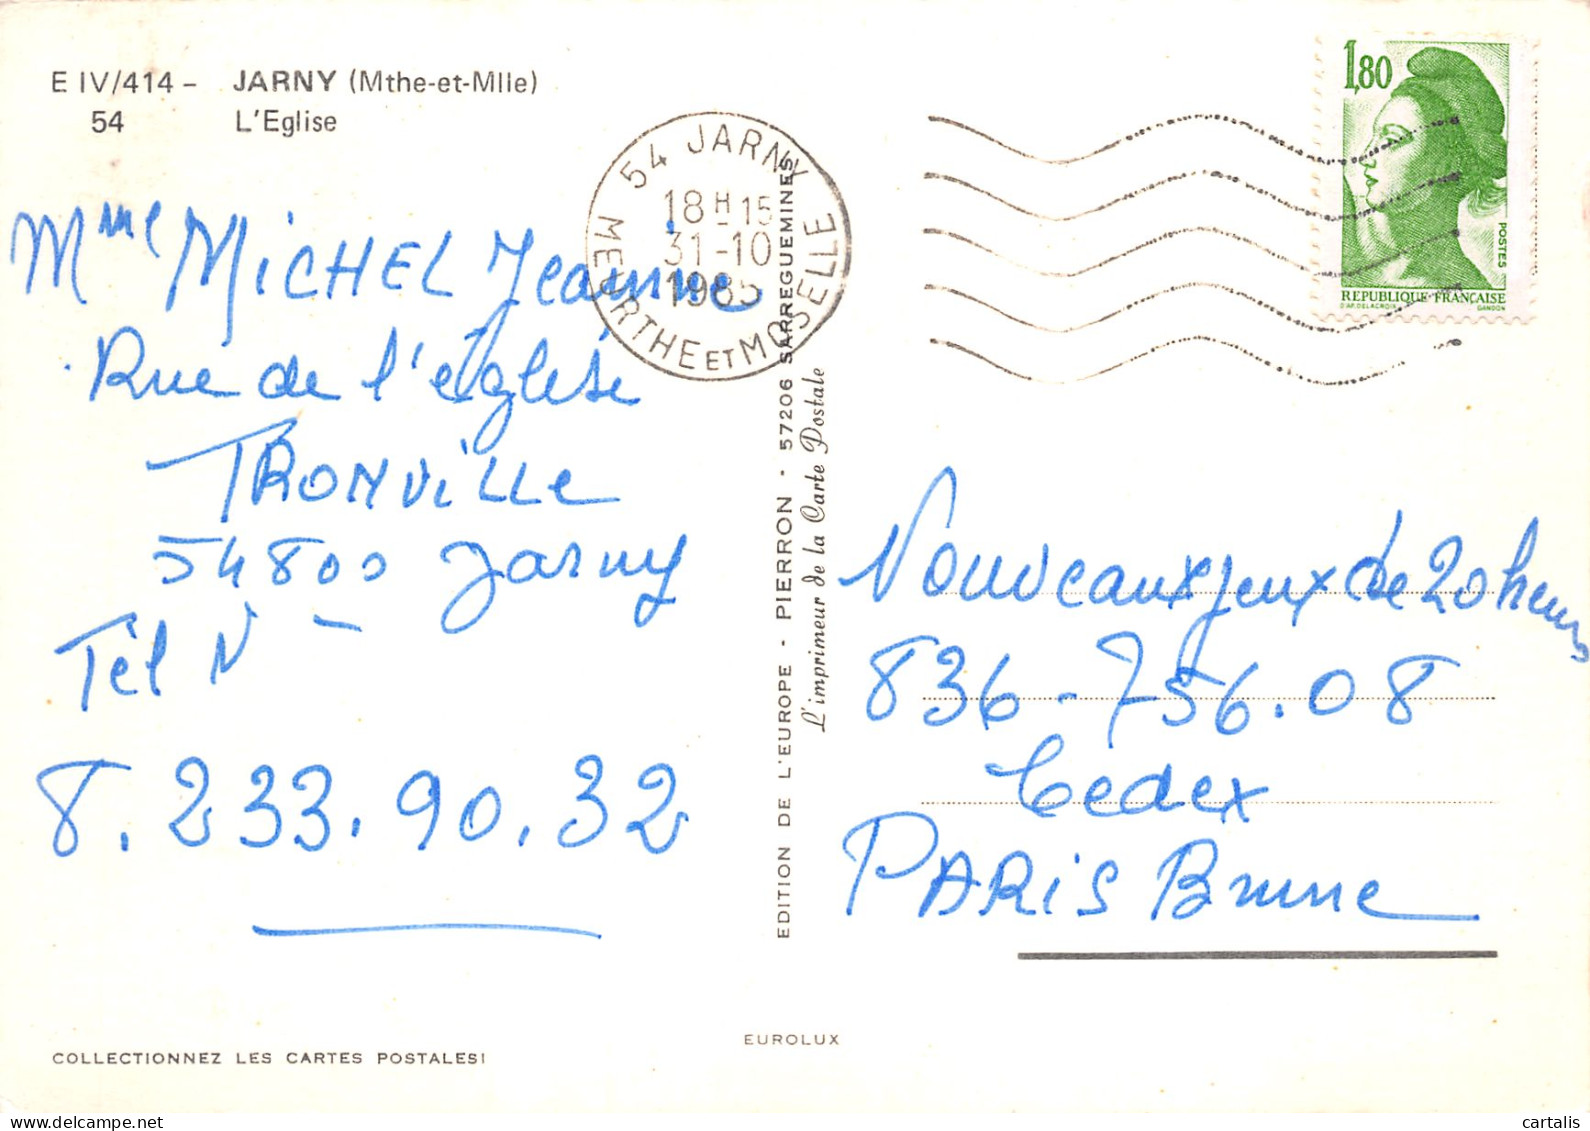 E IV/414 - JARNY (Mthe-et-Mlle)
54 L'Eglise
54 JARNY
18 H 15
31-10
1985
MEURTHE ET MOSELLE
1,80
POSTES
REPUBLIQUE FRANÇAISE
D'AP. DELACROIX GANDON
Mme MICHEL Jeannine
Rue de l'église
TRONVILLE
54800 Jarny
Tél N°
8.233.90.32
EDITION DE L'EUROPE - PIERRON - 57206 SARREGUEMINES
L'imprimeur de la Carte Postale
Nouveaux jeux de 20 heures
836-756.08
Cedex
PARIS Brune
EUROLUX
COLLECTIONNEZ LES CARTES POSTALES!
cartalis